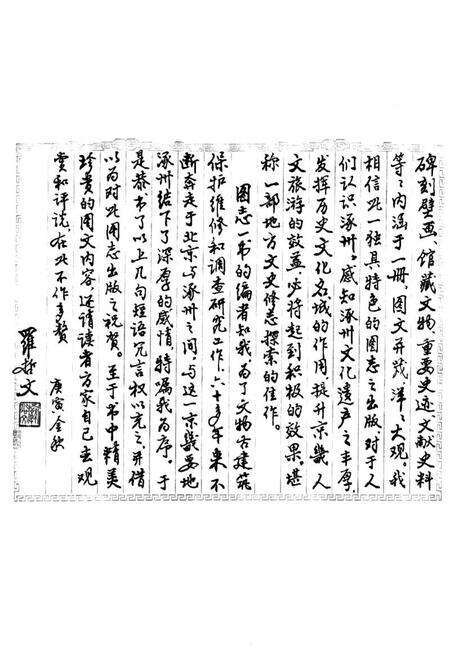 碑刻壁画、馆藏文物、重要史迹文献史料
等等内涵于一册，图文并茂，洋洋大观。我
相信此一独具特色的图志之出版，对于人
们认识涿州，感知涿州文化遗产之丰厚，
发挥历史文化名城的作用，提升京畿人
文旅游的效益，必将起到积极的效果。堪
称一部地方文史修志探索的佳作。
图志一书的编者知我，为了文物古建筑
保护维修和调查研究工作，六十多年来不
断奔走于北京与涿州之间，与这一京畿要地
涿州结下了深厚的感情，特嘱我为序。于
是恭书了以上几句短语冗言权以充之，并借
以为对此图志出版之祝贺。至于书中精美
珍贵的图文内容，还请读者方家自己去观
赏和评说，在此不作多赘
庚寅金秋
羅哲文